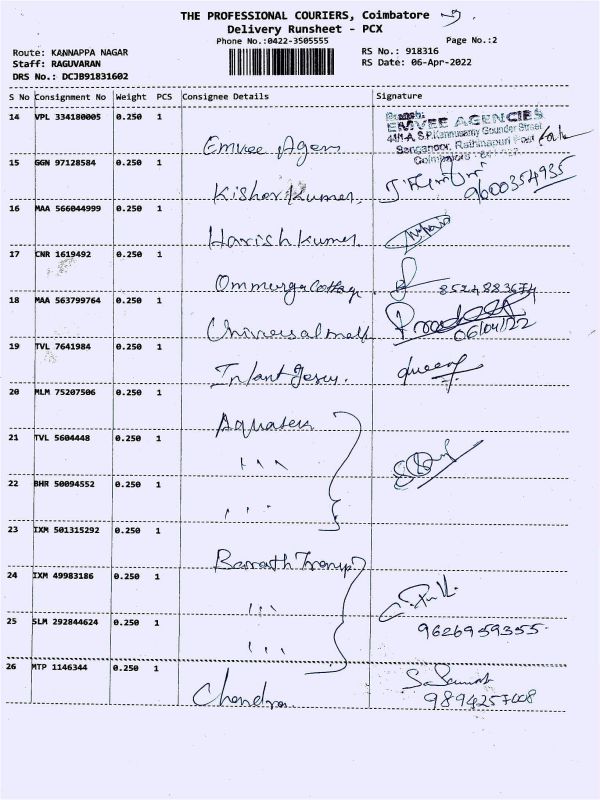 THE PROFESSIONAL COURIERS, Coimbatore
Delivery Runsheet - PCX
Phone No.:0422-3505555
Page No.:2
Route: KANNAPPA NAGAR
RS No.: 918316
Staff: RAGUVARAN
RS Date: 06-Apr-2022
DRS No.: DCJB91831602
S No Consignment No Weight PCS Consignee Details Signature
14 VPL 334180005 0.250 1
EMVEE AGENCIES
Emvee Agen
15 GGN 97128584 0.250 1
Kishor Kumar
9600354935
16 MAA 566044999 0.250 1
Harish Kumar
17 CNR 1619492 0.250 1
Ommuruga Cottag
18 MAA 563799764 0.250 1
Universal
06/04/22
19 TVL 7641984 0.250 1
Infant Jesus.
20 MLM 75207506 0.250 1
21 TVL 5604448 0.250 1
22 BHR 50094552 0.250 1
23 IXM 501315292 0.250 1
Barrath Transp
24 IXM 49983186 0.250 1
25 SLM 292844624 0.250 1
9626959355
26 MTP 1146344 0.250 1
Chandra
9894257008